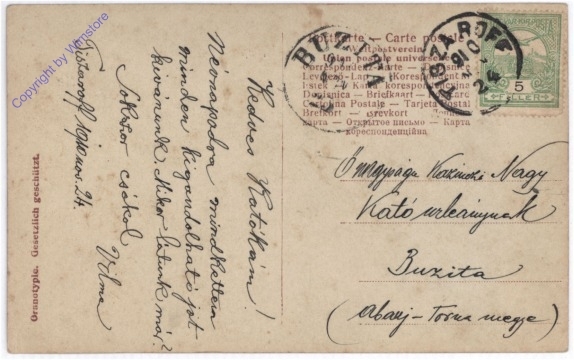 Copyright by Wenstore
Oranotypie. Gesetzlich geschützt.
Tiszaroff 1910 nov. 24.
Kedves Katókám!
Nevenapodra mindketten
minden kigondolható jót
kivánunk. Mikor látunk már?
Sokszor csókol
Vilma
Carte postale
Weltpostverein
Union postale universelle
Correspondenz-Karte
Levelező-Lap
Korespondenční
karta korespondencyjna
Dopisnica – Briefkaart –
Cartolina Postale – Tarjeta Postal
Brefkort – Brevkort –
карта – Открытое письмо – Карта
кореспонденційна
BUZITA
TISZAROFF
910
24
5
FILLÉR
Őnagysága Kazinczi Nagy
Kató urleánynak
Buzita
(Abauj-Torna megye)